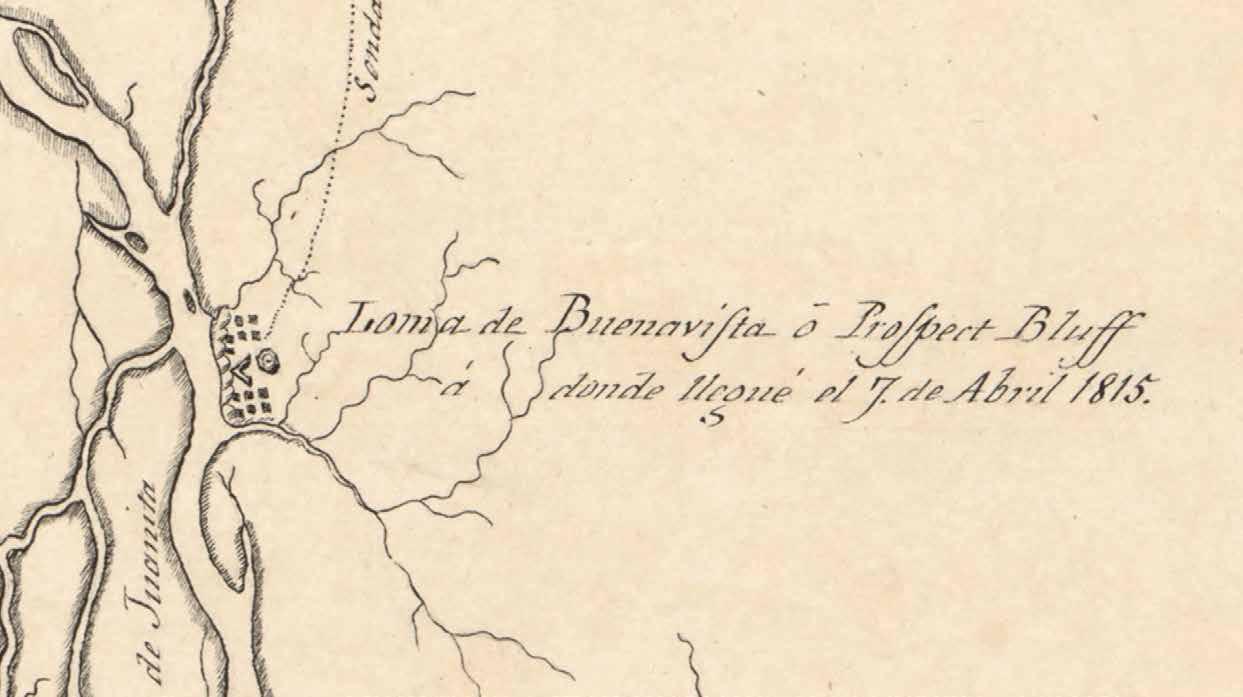 Senda
Loma de Buenavista ó Prospect Bluff
á donde llegué el 7. de Abril 1815.
de Juanita